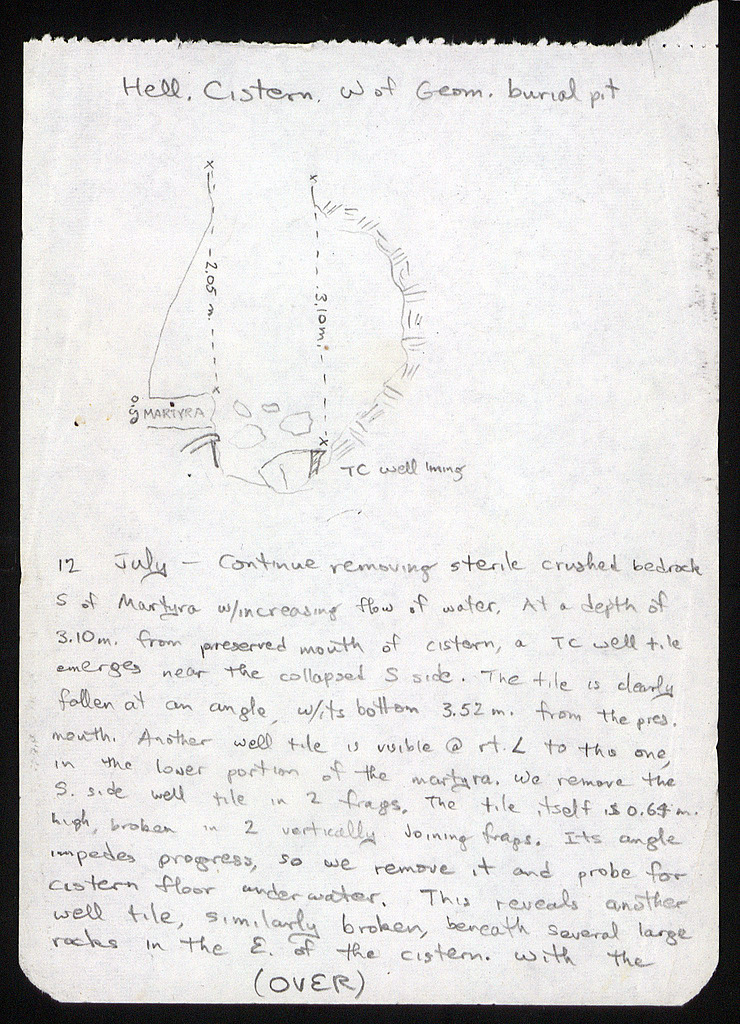 Hell. Cistern. W of Geom. burial pit
2.05 m.
3.10 m.
0.50
MARTYRA
TC well lining
12 July — Continue removing sterile crushed bedrock
S of Martyra w/increasing flow of water. At a depth of
3.10 m. from preserved mouth of cistern, a TC well tile
emerges near the collapsed S side. The tile is clearly
fallen at an angle, w/its bottom 3.52 m. from the pres.
mouth. Another well tile is visible @ rt. ∠ to this one,
in the lower portion of the martyra. We remove the
S. side well tile in 2 frags. The tile itself is 0.64 m.
high, broken in 2 vertically joining frags. Its angle
impedes progress, so we remove it and probe for
cistern floor under water. This reveals another
well tile, similarly broken, beneath several large
rocks in the E. of the cistern. With the
(OVER)